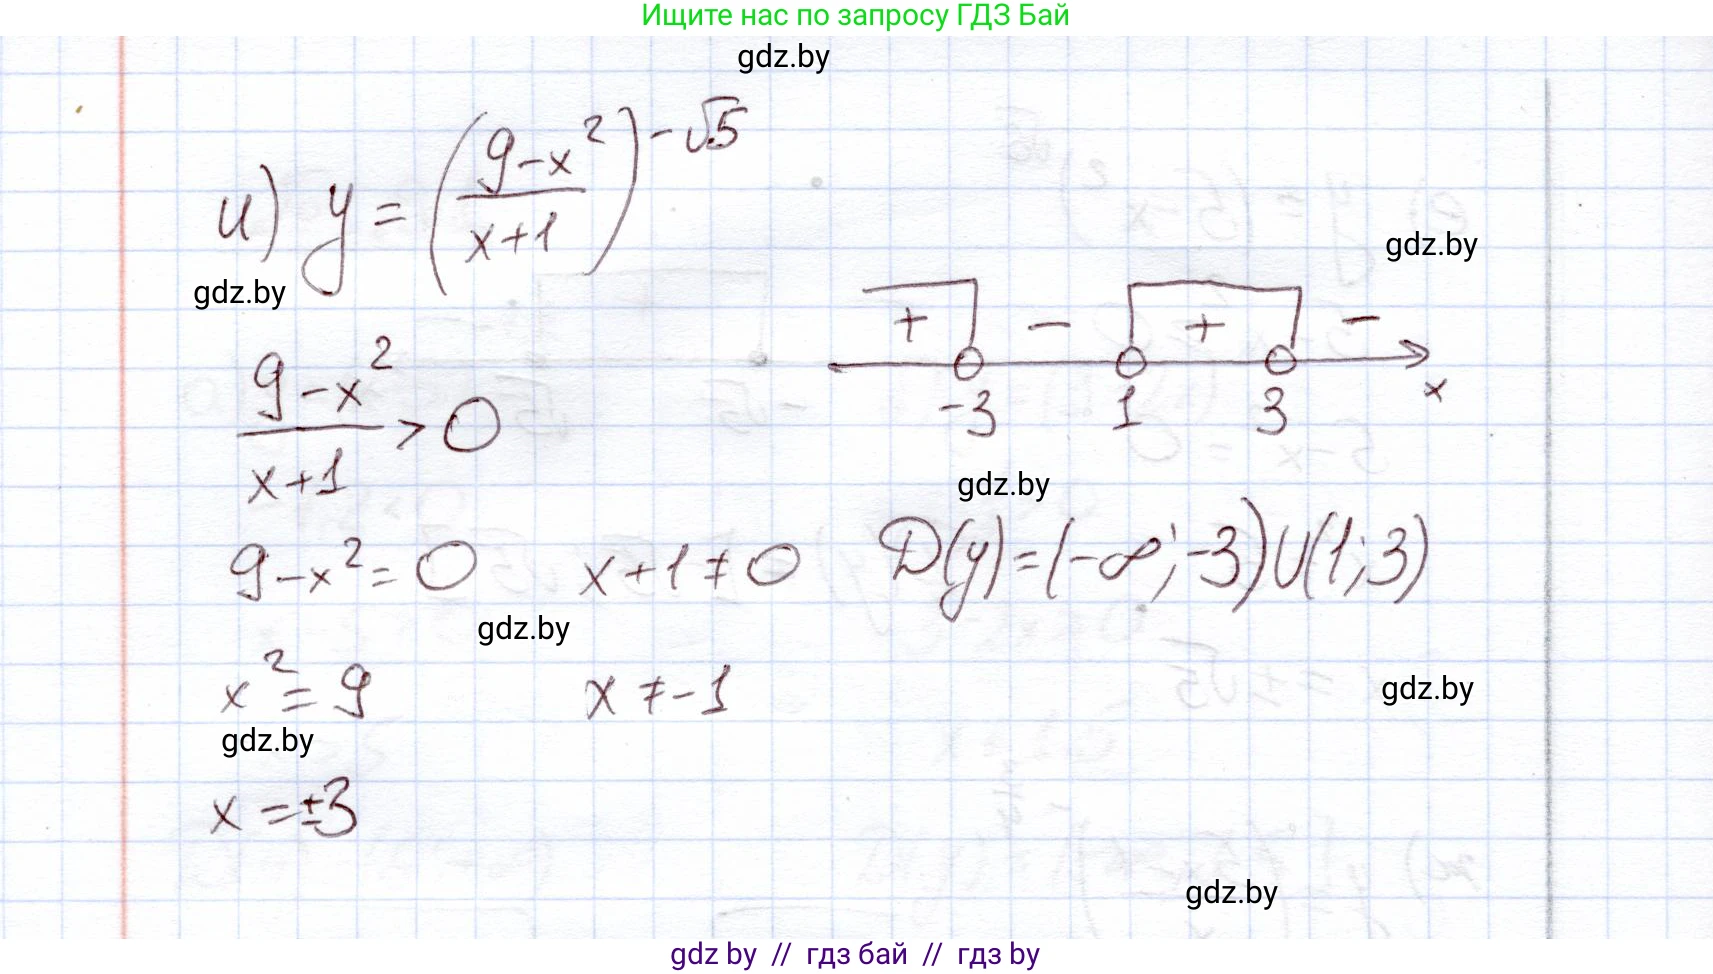 Ищите нас по запросу ГДЗ Бай
gdz.by
и) y = ((9-x²)/(x+1))^(-√5)
gdz.by
gdz.by
(9-x²)/(x+1) > 0
+ - + -
-3 1 3 x
gdz.by
9-x² = 0 x+1 ≠ 0 D(y) = (-∞; -3) U (1; 3)
gdz.by
x² = 9 x ≠ -1
gdz.by
gdz.by
x = ±3
gdz.by
gdz by // гдз бай // гдз by